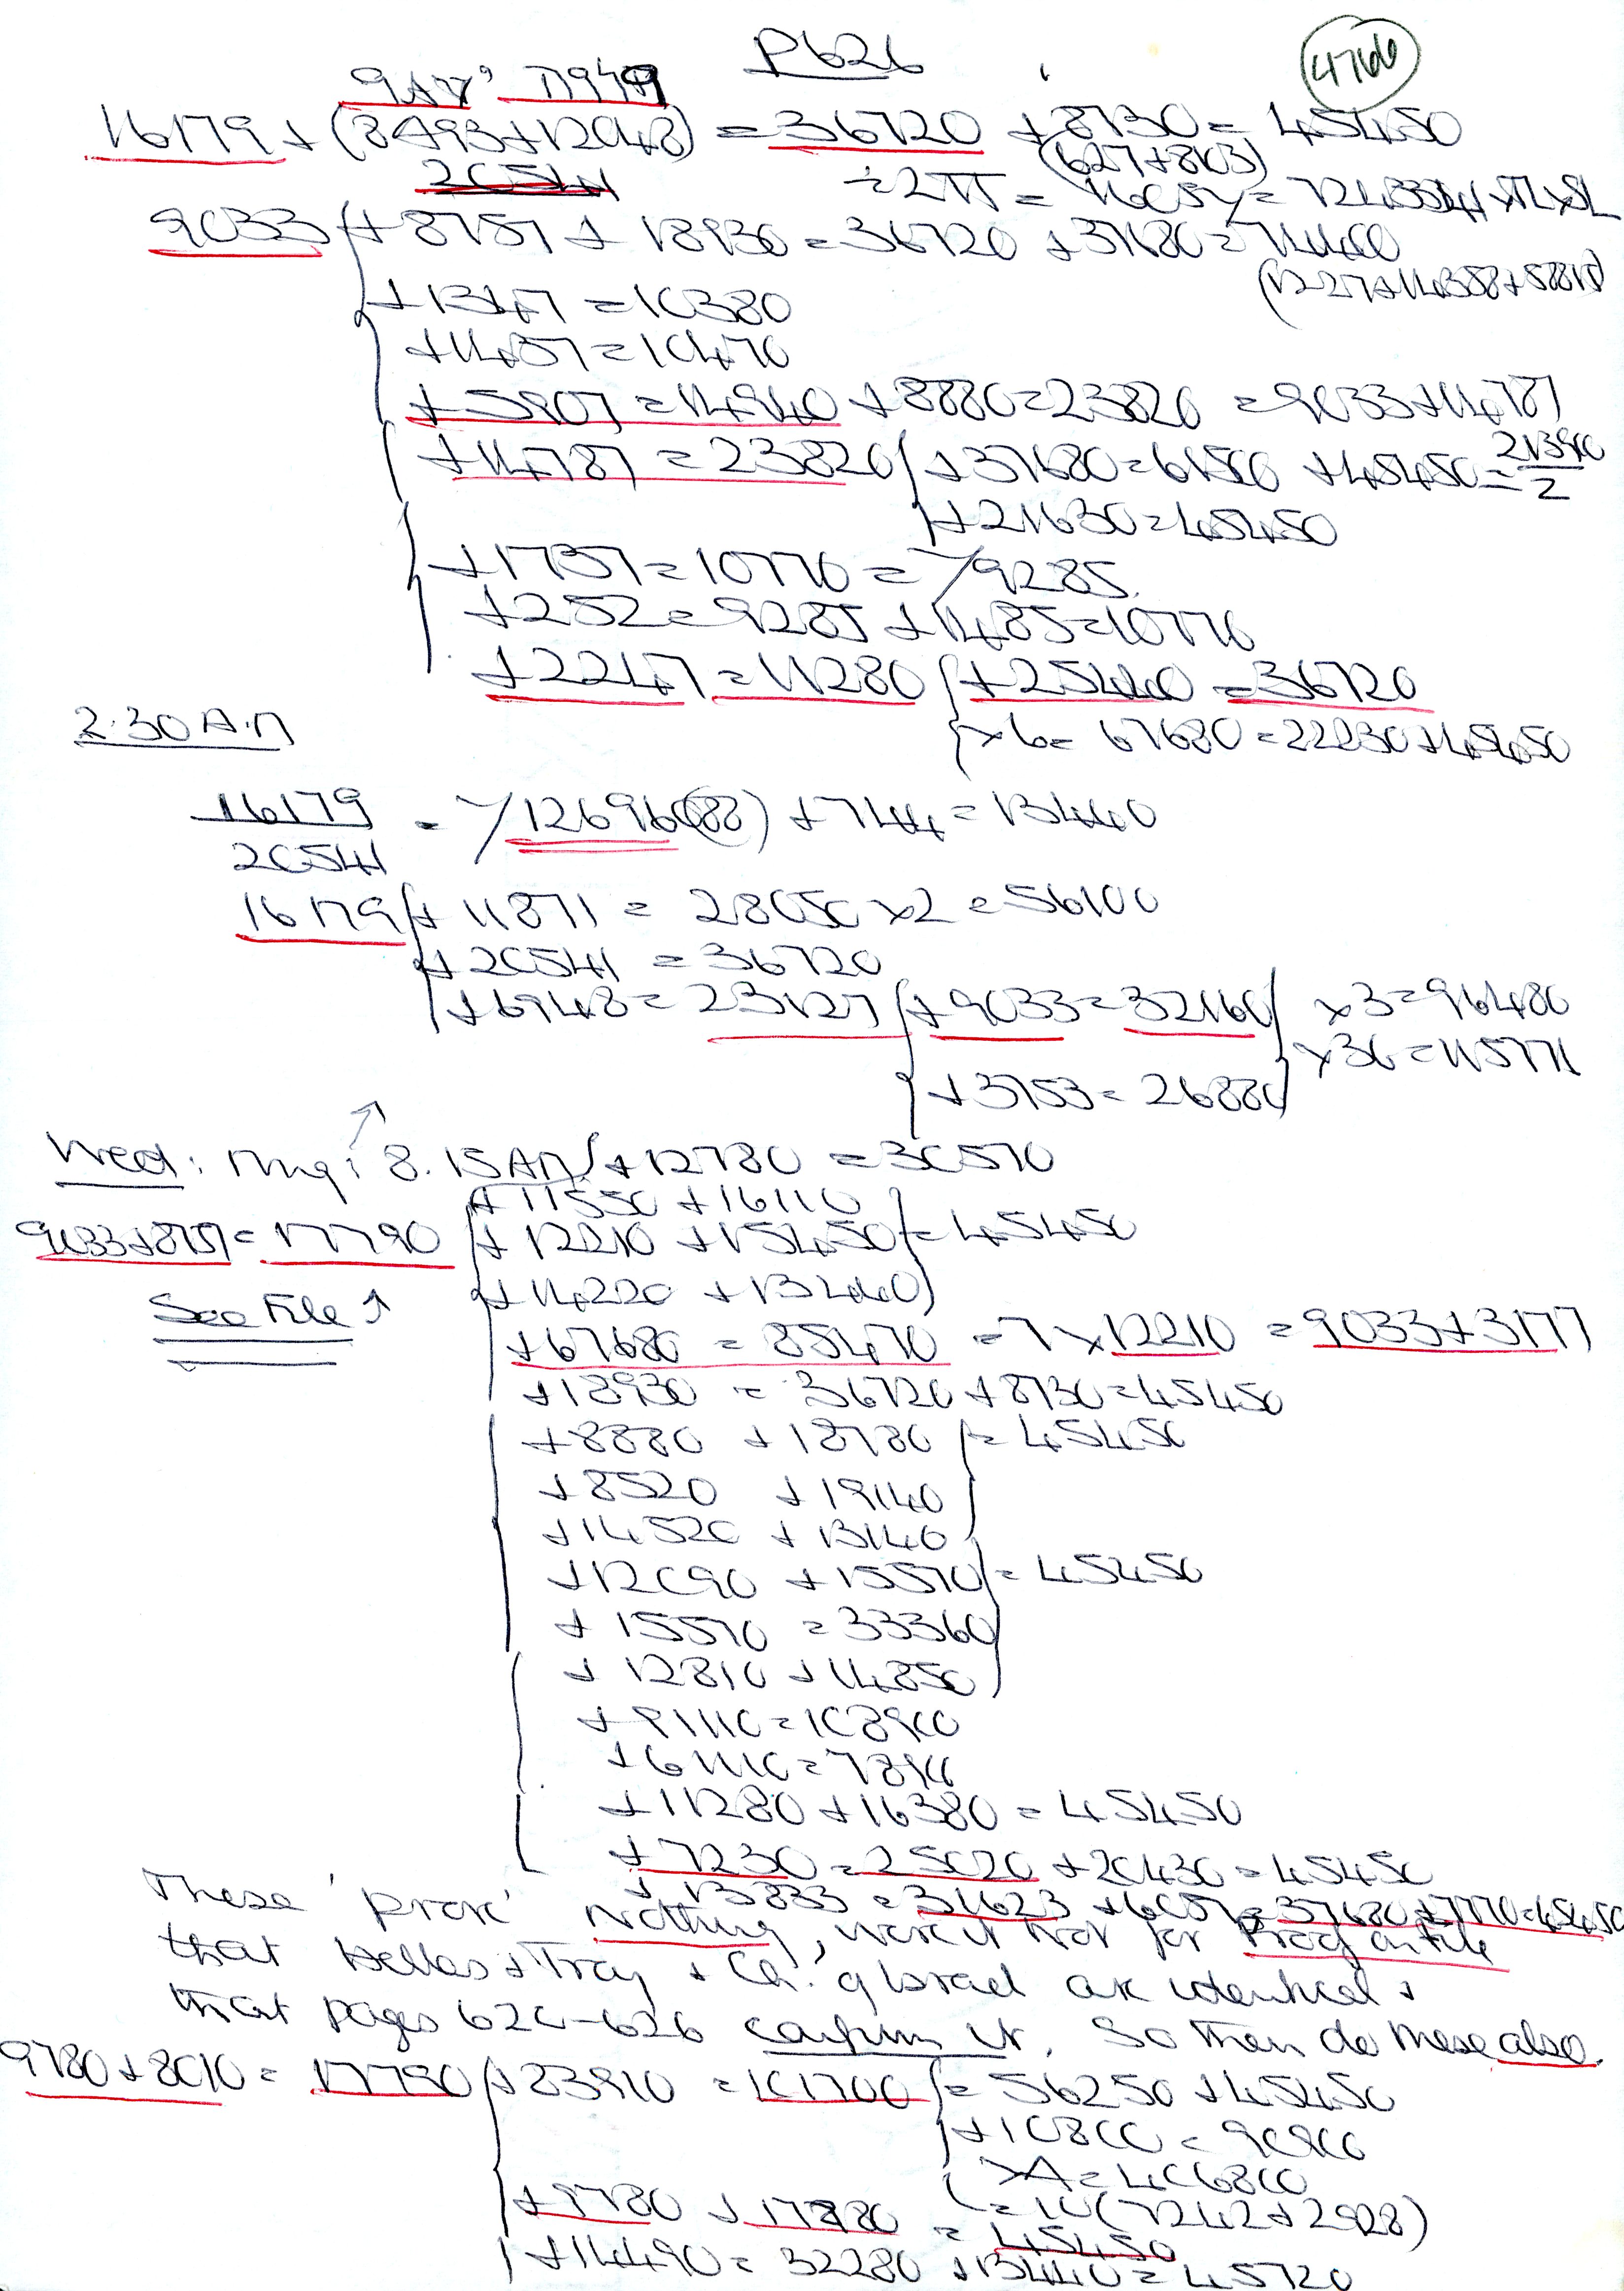 P626
4766
16179 + (8493+12048) = 36720 + 8730 = 45450
20541
(627+8103)
9033 + 8757 + 18930 = 36720 + 37680 = 74400
+1347 = 10380
+1437 = 10470
+5907 = 14940 + 8880 = 23820 = 9033+14787
+14787 = 23820 + 37680 = 61500 + 45450 = 213900/2
+21630 = 45450
+1737 = 10770 = 
+252 = 9285 + 1485 = 10770
+2247 = 11280 + 25440 = 36720
×6 = 67680 = 22230 + 45450
2.30 A.M
16179 = 12696(88) + 744 = 13440
20541
16179 + 11871 = 28050 ×2 = 56100
+20541 = 36720
+6948 = 23127 + 9033 = 32160 ×3 = 96480
×36 = 115771
+3753 = 26880
Wed: Mng: 8.15AM +12780 = 30570
+11550 +16110
9033+8757 = 17790 +12210 +15450 = 45450
+14220 +13440
See File ↑
+67680 = 85470 = 7 ×12210 = 9033+3177
+18930 = 36720 +8730 = 45450
+8880 +18780 = 45450
+8520 +19140
+14520 +13140
+12090 +15570 = 45450
+15570 = 33360
+12810 +14850
+91110 = 108900
+61110 = 78900
+11280 +16380 = 45450
+7230 = 25020 +20430 = 45450
+13833 = 31623 +6057 = 37680 +7770 = 45450
These 'prove' Nothing, were it not for Proof on File
that Hellas + Troy + Ch: of Israel are identical +
that pages 620-626 confirm it. So then do these also.
9780+8010 = 17790 +83910 = 101700 = 56250 +45450
+10800 = 90900
×4 = 406800
= 10(7242+2928)
+9780 +17880 = 45450
+14490 = 32280 +13440 = 45720